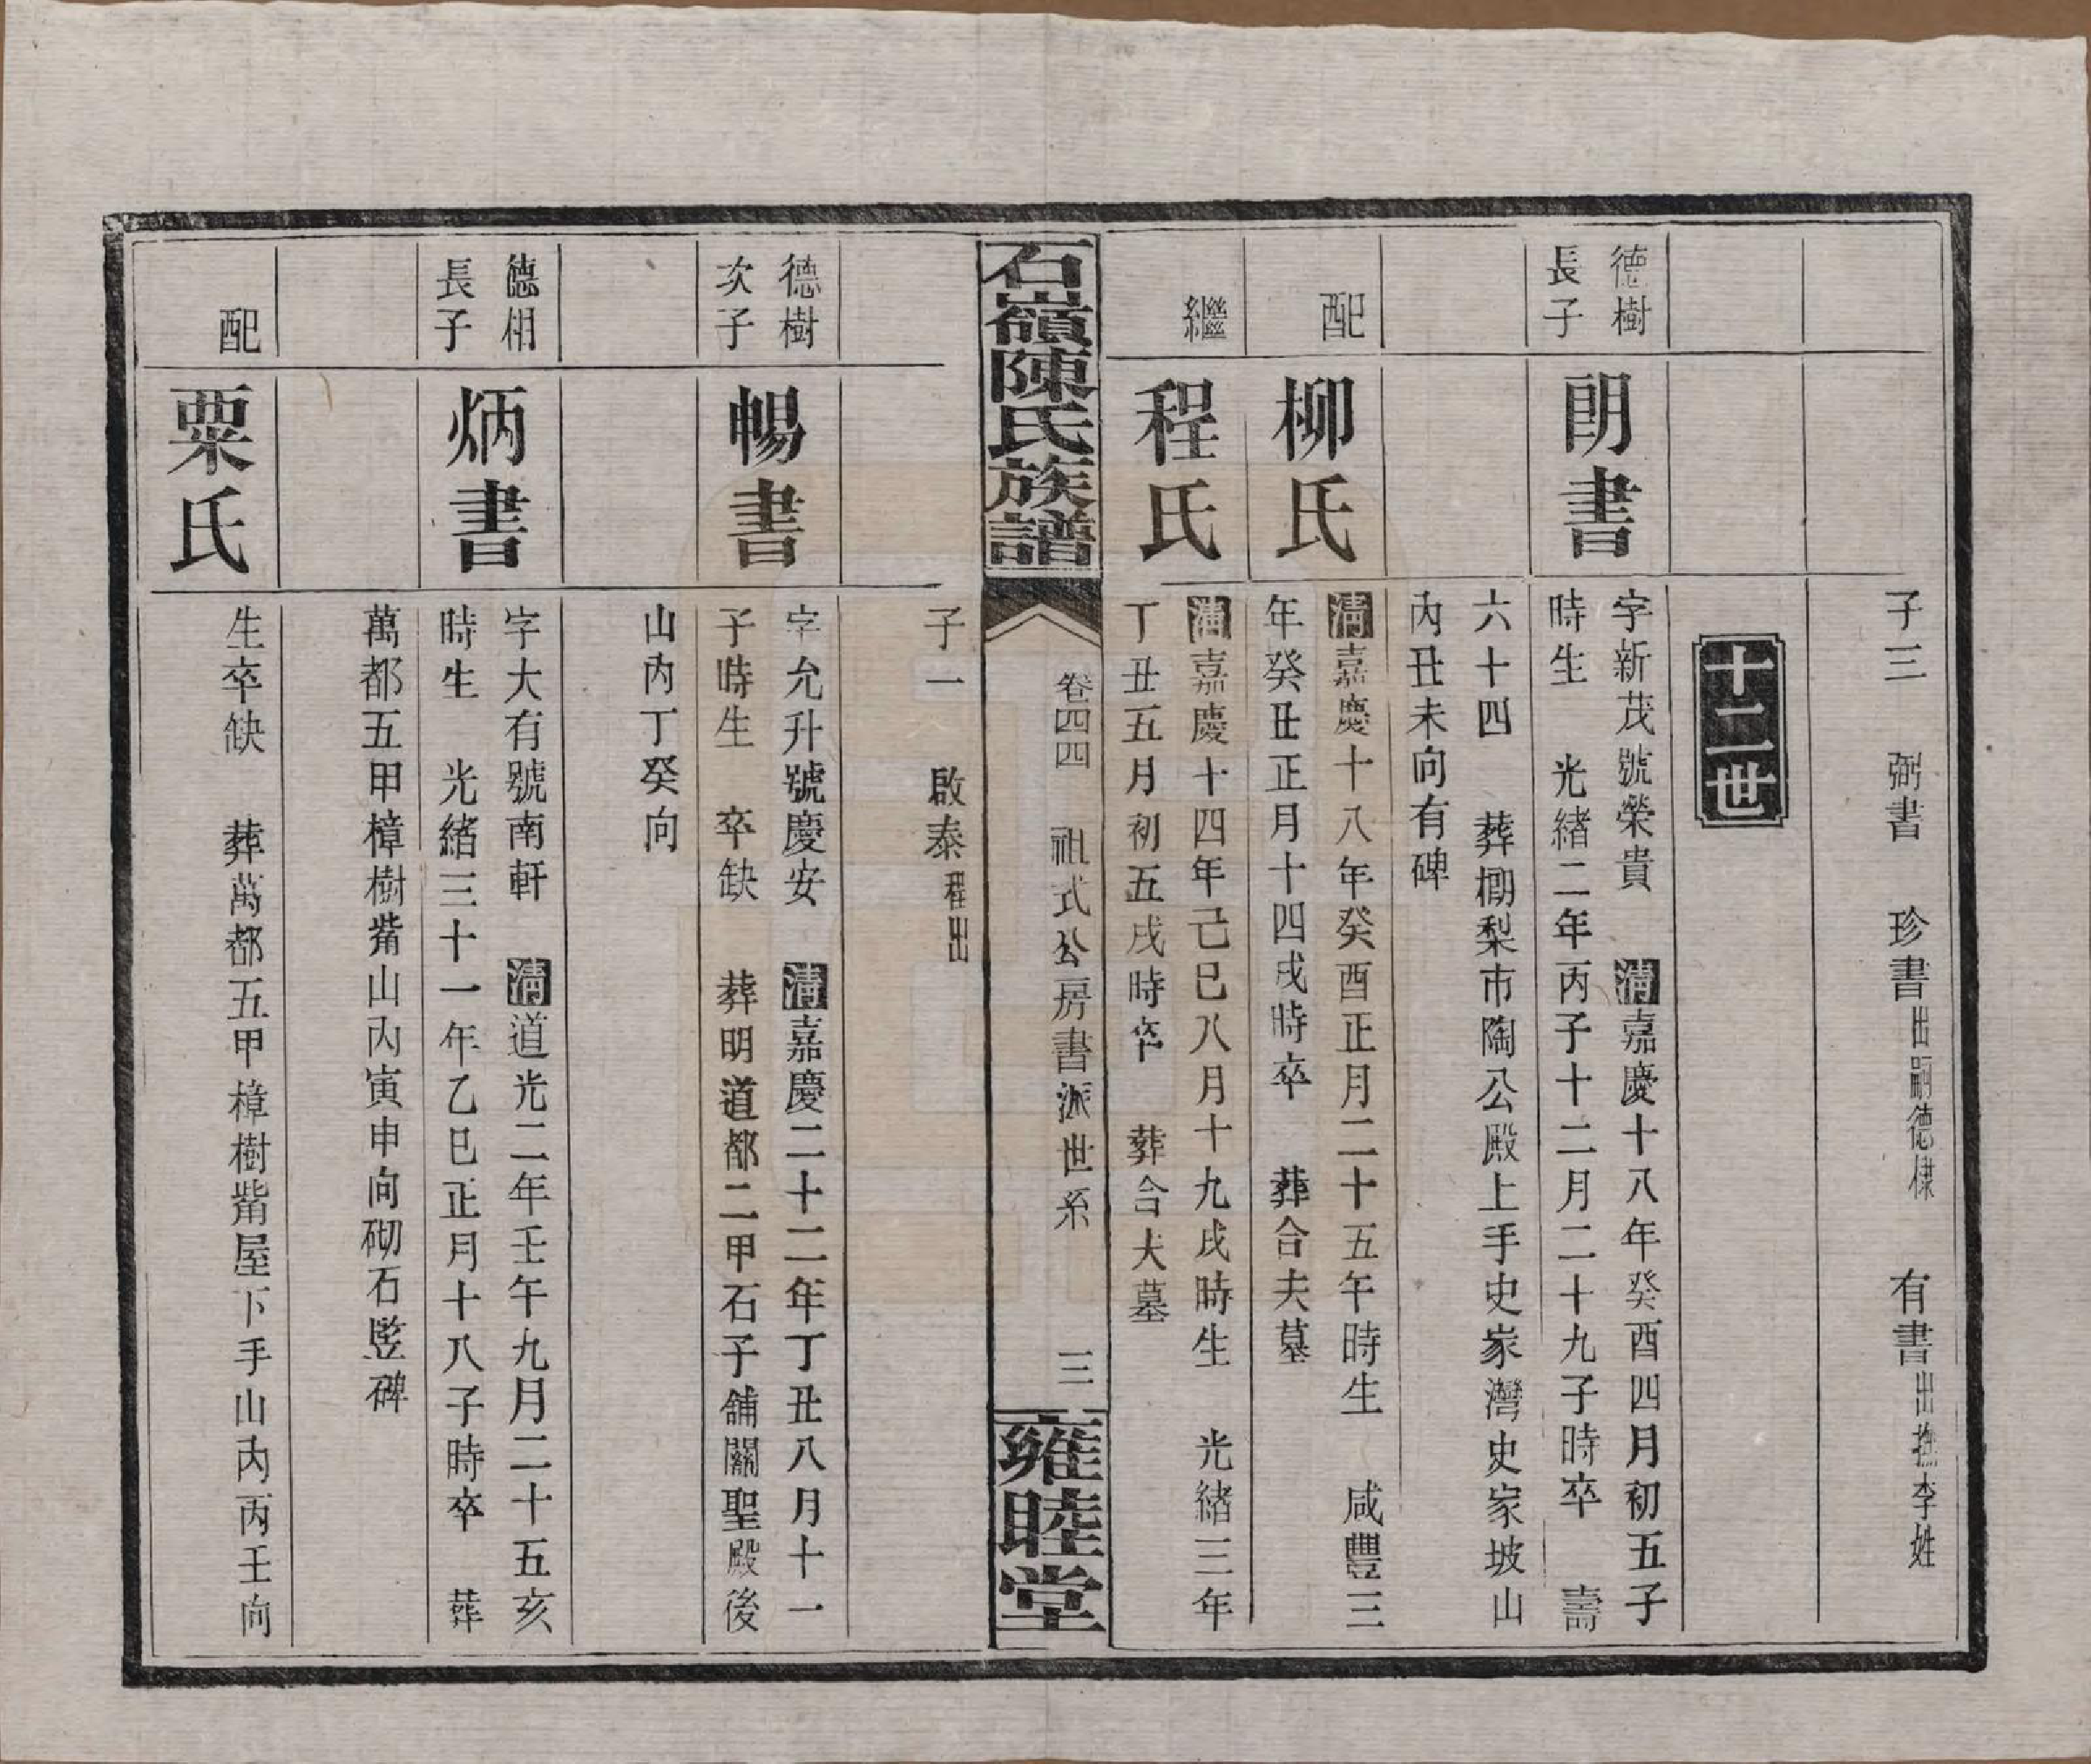 子三 弼書 珍書出嗣德棣 有書出撫李姓
十二世
德樹
長子
朗書
字新茂號榮貴 清嘉慶十八年癸酉四月初五子
時生 光緒二年丙子十二月二十九子時卒 壽
六十四 葬㮾梨市陶公殿上手史家灣史家坡山
內丑未向有碑
配
柳氏
清嘉慶十八年癸酉正月二十五午時生 咸豐三
年癸丑正月十四戌時卒 葬合夫墓
繼
程氏
清嘉慶十四年己巳八月十九戌時生 光緒三年
丁丑五月初五戌時卒 葬合夫墓
石嶺陳氏族譜
卷四四 祖式公房書派世系 三
雍睦堂
子一 啟泰程出
德樹
次子
暢書
字允升號慶安 清嘉慶二十二年丁丑八月十一
子時生 卒缺 葬明道都二甲石子舖關聖殿後
山內丁癸向
德相
長子
炳書
字大有號南軒 清道光二年壬午九月二十五亥
時生 光緒三十一年乙巳正月十八子時卒 葬
萬都五甲樟樹觜山內寅申向砌石竪碑
配
粟氏
生卒缺 葬萬都五甲樟樹觜屋下手山內丙壬向